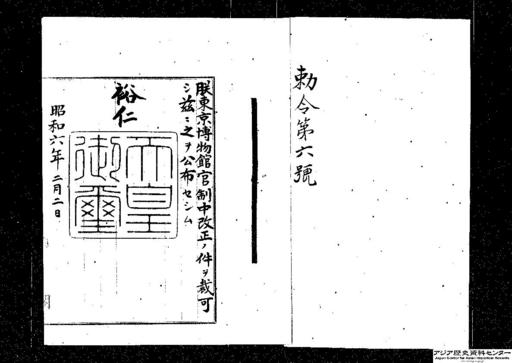 勅令第六號
朕東京博物館官制中改正ノ件ヲ裁可
シ茲ニ之ヲ公布セシム
裕仁
天皇
御璽
昭和六年二月二日
アジア歴史資料センター
Japan Center for Asian Historical Records